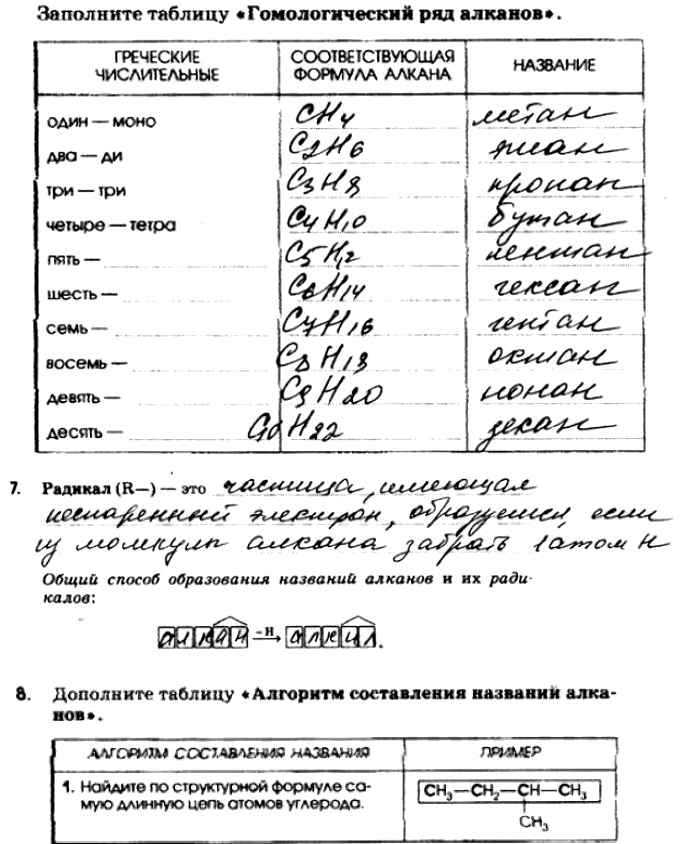 Заполните таблицу «Гомологический ряд алканов».
ГРЕЧЕСКИЕ ЧИСЛИТЕЛЬНЫЕ | СООТВЕТСТВУЮЩАЯ ФОРМУЛА АЛКАНА | НАЗВАНИЕ
один — моно CH4 метан
два — ди C2H6 этан
три — три C3H8 пропан
четыре — тетра C4H10 бутан
пять — C5H12 пентан
шесть — C6H14 гексан
семь — C7H16 гептан
восемь — C8H18 октан
девять — C9H20 нонан
десять — C10H22 декан
7. Радикал (R—) — это частица, имеющая
неспаренный электрон, образуется, если
из молекулы алкана забрать 1 атом H
Общий способ образования названий алканов и их ради-
калов:
алкан –H→ алкил.
8. Дополните таблицу «Алгоритм составления названий алка-
нов».
АЛГОРИТМ СОСТАВЛЕНИЯ НАЗВАНИЯ ПРИМЕР
1. Найдите по структурной формуле са-
мую длинную цепь атомов углерода.
CH3—CH2—CH—CH3
CH3